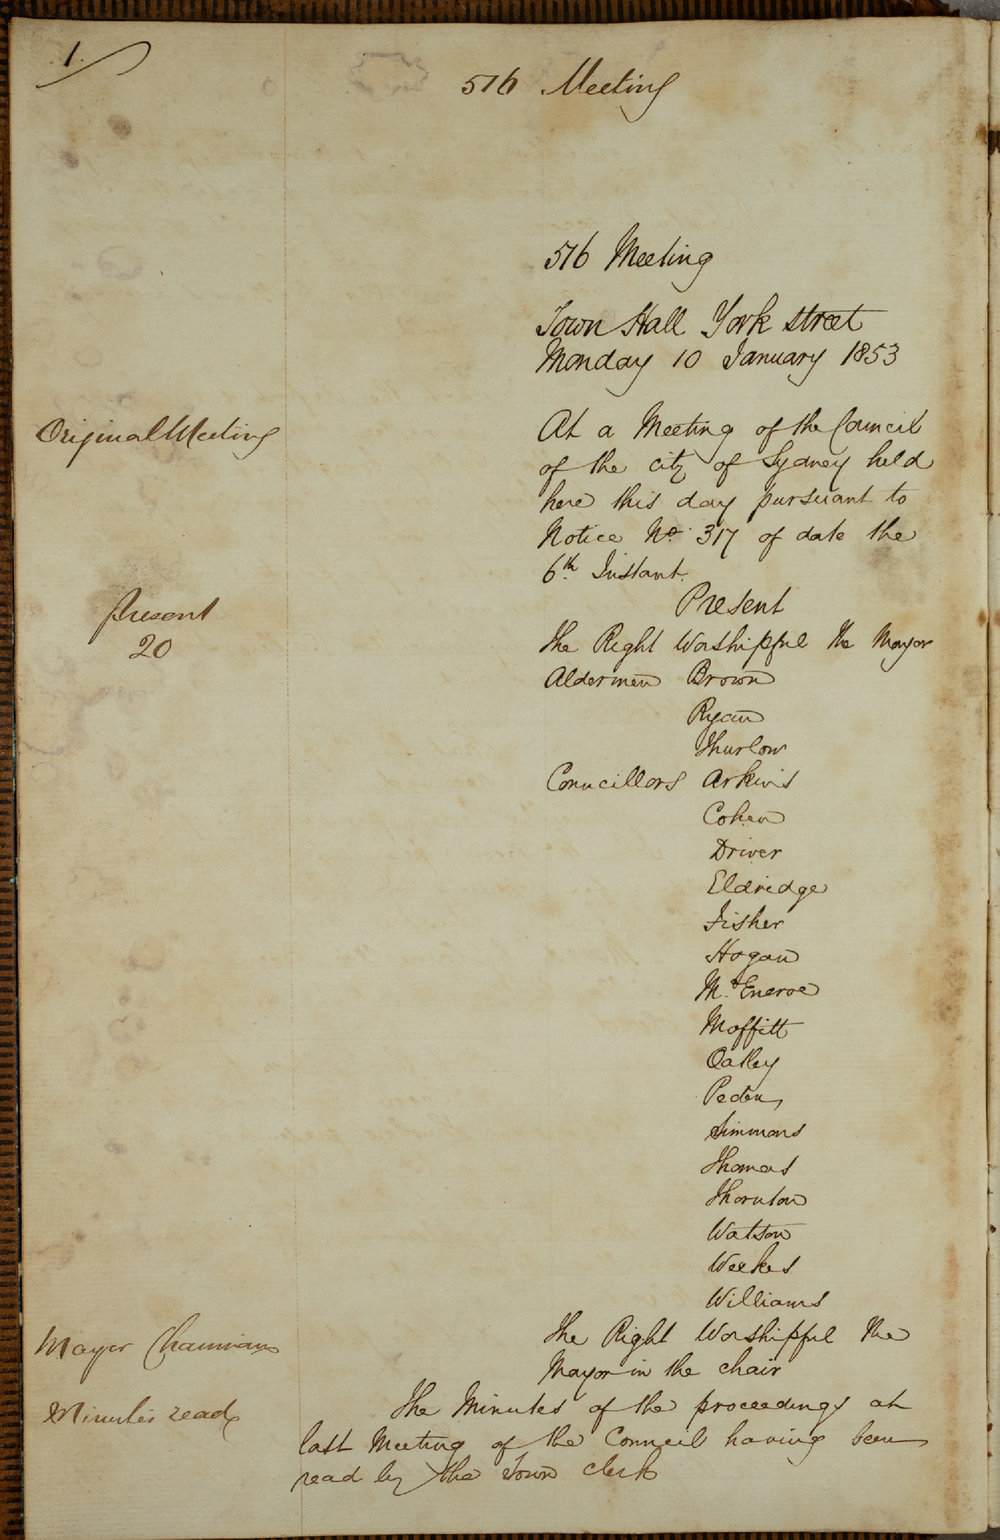 1.
516 Meeting
516 Meeting
Town Hall York street
Monday 10 January 1853
Original Meeting
At a Meeting of the Council
of the city of Sydney held
here this day pursuant to
Notice No. 317 of date the
6th. Instant.
Present
20
Present
The Right Worshipful the Mayor
Aldermen Brown
Ryan
Thurlow
Councillors Arkins
Cohen
Driver
Eldridge
Fisher
Hogan
McEncroe
Moffitt
Oatley
Peden
Simmons
Thomas
Thornton
Watson
Weekes
Williams
Mayor Chairman
The Right Worshipful the
Mayor in the chair
Minutes read
The Minutes of the proceedings at
last Meeting of the Council having been
read by the Town Clerk